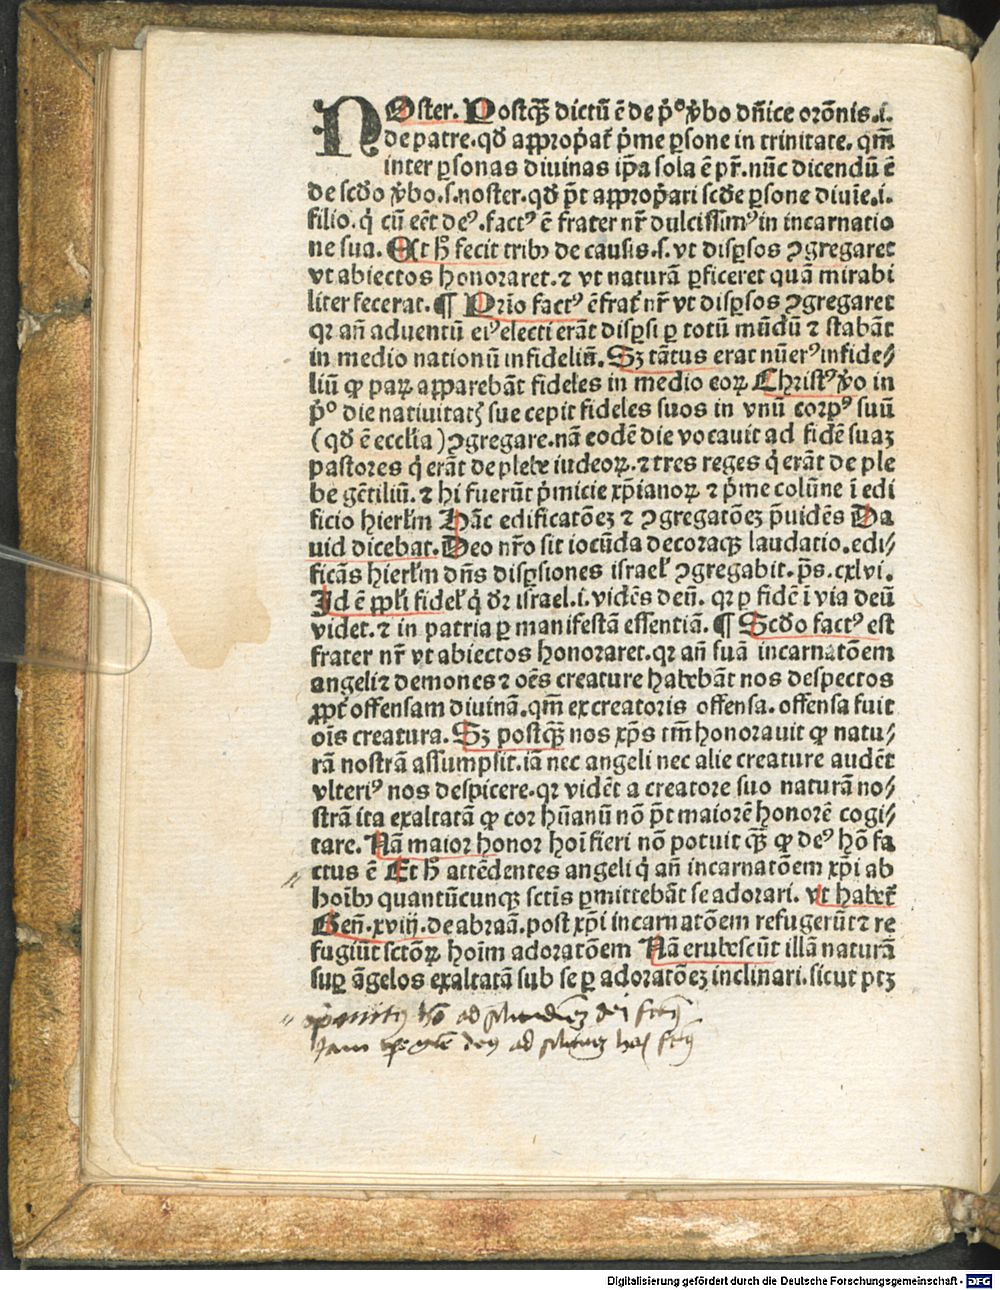 NOster. Postqꝫ dictū ē de p̄º ꝟbo dn̄ice orōnis.i.
de patre. qđ appropat̄ p̄me ꝑsone in trinitate. qm̄
inter ꝑsonas diuinas ip̄a sola ē pr̄. nūc dicendū ē
de scđo ꝟbo .s. noster. qđ p̄t appropari scđe ꝑsone diuīe.i.
filio. q̇ cū eēt deꝰ. factꝰ ē frater nr̄ dulcissimꝰ in incarnatio
ne sua. Et h̄ fecit tribꝫ de causis .s. vt disꝑsos ꝯgregaret
vt abiectos honoraret. ⁊ vt naturā ꝑficeret quā mirabi
liter fecerat. ¶ Prīo factꝰ ē frat̄ nr̄ vt disꝑsos ꝯgregaret
qꝛ an̄ aduentū eiꝰ electi erāt disꝑsi ꝑ totū mūdū ⁊ stabāt
in medio nationū infideliū. Sꝫ tātus erat nūerꝰ infide⸗
liū ꝙ paꝝ apparebāt fideles in medio eoꝝ Christꝰ ꝟo in
p̄º die natiuitatꝭ sue cepit fideles suos in vnū corpꝰ suū
(qđ ē ecclīa) ꝯgregare. nā eodē die vocauit ad fidē suaꝫ
pastores q̇ erāt de plebe iudeoꝝ. ⁊ tres reges q̇ erāt de ple
be gētiliū. ⁊ hi fuerūt p̄micie xp̄ianoꝝ ⁊ p̄me colūne ī edi
ficio hierl̄m Hāc edificatōeꝫ ⁊ ꝯgregatōeꝫ p̄uidēs Da
uid dicebat. Deo nr̄o sit iocūda decoraqꝫ laudatio. edi⸗
ficās hierl̄m dn̄s disꝑsiones israel̄ ꝯgregabit. ps̄. cxlvi.
Id ē ppl̄i fidel̄ q̇ dr̄ israel .i. vidēs deū. qꝛ ꝑ fidē ī via deū
videt. ⁊ in patria ꝑ manifestā essentiā. ¶ Scđo factꝰ est
frater nr̄ vt abiectos honoraret. qꝛ an̄ suā incarnatōem
angeli ⁊ demones ⁊ oēs creature habebāt nos despectos
ꝓpt̄ offensam diuinā. qm̄ ex creatoris offensa. offensa fuit
oīs creatura. Sꝫ postqꝫ nos xp̄s tm̄ honorauit ꝙ natu⸗
rā nostrā assumpsit. iā nec angeli nec alie creature audēt
vlteriꝰ nos despicere. qꝛ vidēt a creatore suo naturā no⸗
strā ita exaltatā ꝙ cor hūanū nō p̄t maiorē honorē cogi⸗
tare. Nā maior honor hoī fieri nō potuit qꝫ ꝙ deꝰ hō fa
ctus ē Et h̄ attēdentes angeli q̇ an̄ incarnatōem xp̄i ab
hoībꝫ quantūcunqꝫ sctīs ꝑmittebāt se adorari. vt habet̄
Gen̄. xviij. de abraā. post xp̄i incarnatōem refugerūt ⁊ re
fugiūt sctōꝝ hoīm adoratōem Nā erubescūt illā naturā
suꝑ āgelos exaltatā sub se ꝑ adoratōeꝫ inclinari. sicut ptꝫ
Digitalisierung gefördert durch die Deutsche Forschungsgemeinschaft - DFG